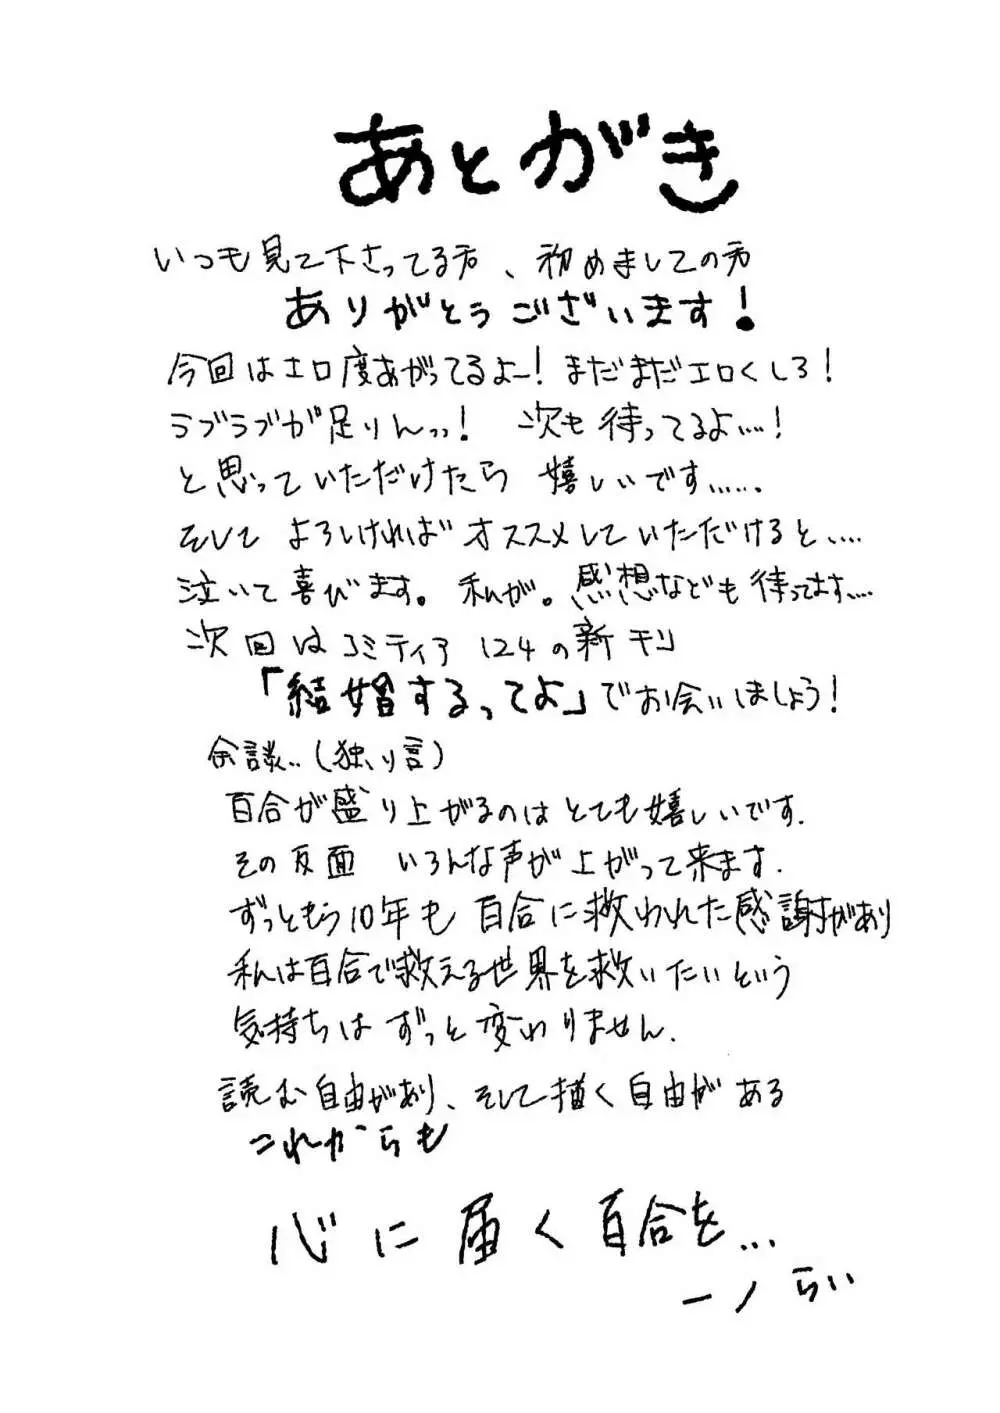 あとがき
いつも見て下さってる方、初めましての方
ありがとうございます!
今回はエロ度あがってるよー! まだまだエロくしろ!
ラブラブが足りんっ! 次も待ってるよ…!
と思っていただけたら 嬉しいです……
そしてよろしければオススメしていただけると…
泣いて喜びます。私が。感想なども待ってます…
次回はコミティア124の新刊
「結婚するってよ」でお会いしましょう!
余談..(独り言)
百合が盛り上がるのはとても嬉しいです.
その反面 いろんな声が上がって来ます.
ずっともう10年も百合に救われた感謝があり
私は百合で救える世界を救いたいという
気持ちはずっと変わりません.
読む自由があり、そして描く自由がある
これからも
心に届く百合を...
一ノらい